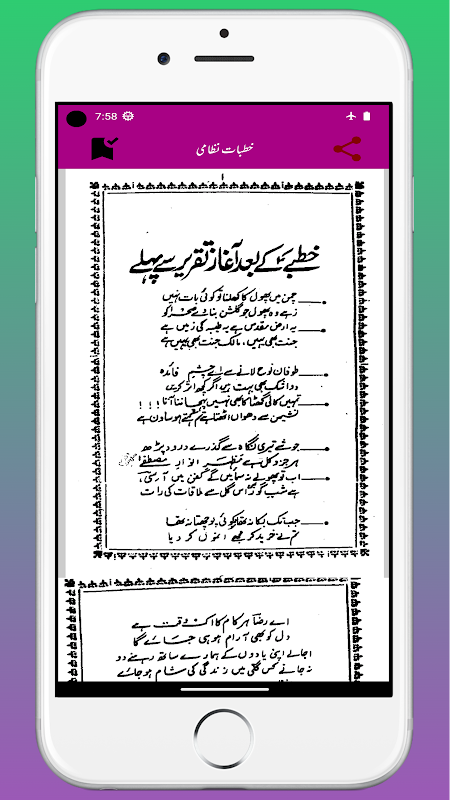 7:58
خطبات نظامی
۱
خطبے کے بعد آغاز تقریر سے پہلے
چمن میں پھول کا کھلنا تو کوئی بات نہیں
زہے وہ پھول جو گلشن بنائے صحرا کو
یہ ارض مقدس ہے یہ طیبہ کی زمیں ہے
جنت بھی یہیں، مالک جنت بھی یہیں ہے
طوفان نوح لانے سے اے چشم فائدہ
دو اشک بھی بہت ہیں اگر کچھ اثر کریں
تمہیں کالی گھٹا کا بھی نہیں پہچاننا آتا !!!
نشیمن سے دھواں اٹھتا ہے تم کہتے ہو ساون ہے
جو شے تیری نگاہ سے گذرے درود پڑھ
ہر جزو کل ہے مظہر انوار مصطفےٰ
اب تو پھولے نہ سمائیں گے کفن میں آسی
ہے شب گور اس گل سے ملاقات کی رات
جب تک بکا نہ تھا کوئی پوچھتا نہ تھا
تم نے خرید کر مجھے انمول کر دیا
اے رضا ہر کام کا اک وقت ہے
دل کو بھی آرام ہو ہی جائے گا
اجالے اپنی یادوں کے ہمارے ساتھ رہنے دو
نہ جانے کس گلی میں زندگی کی شام ہو جائے